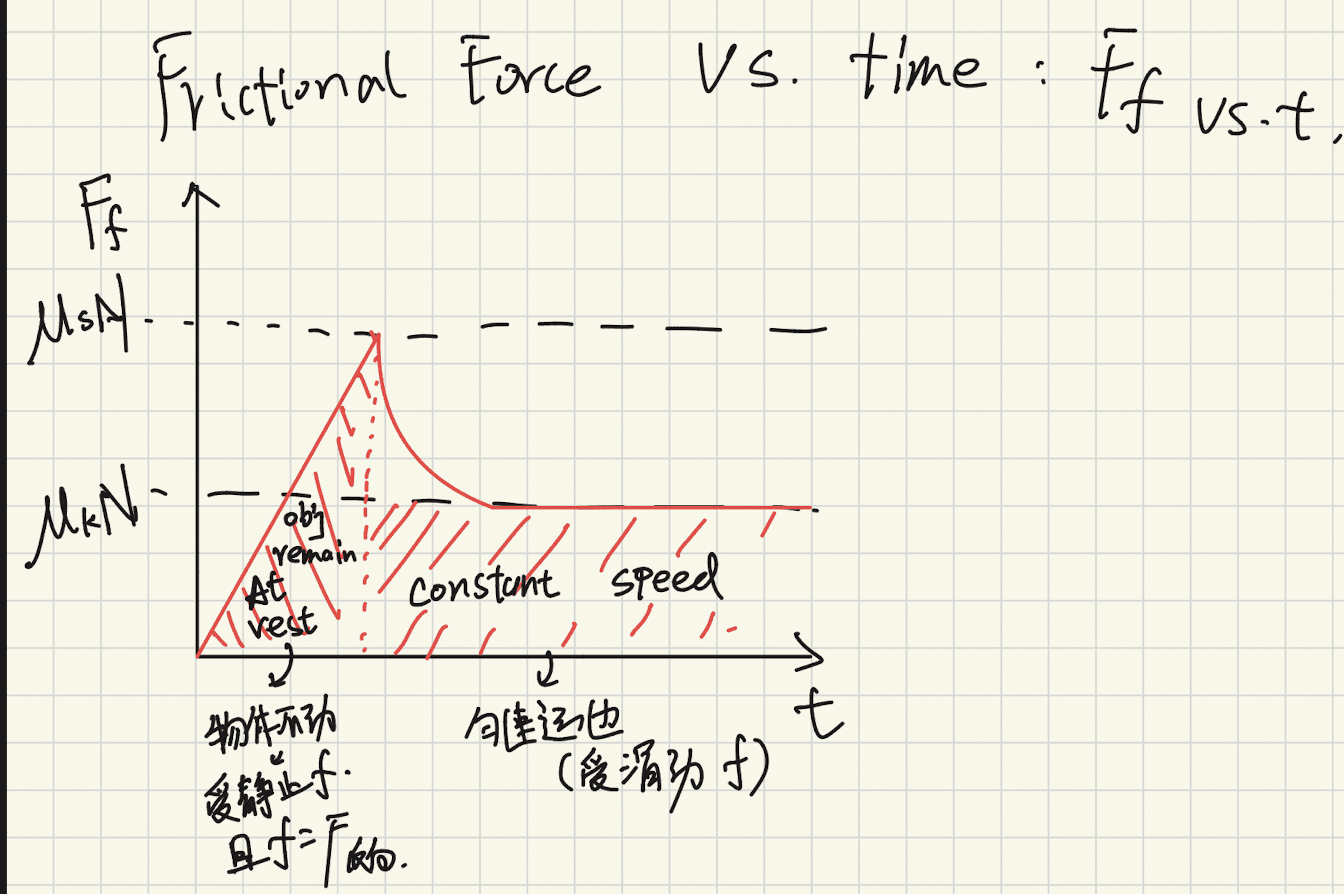 Frictional Force Vs. time : Ff vs.t.
Ff
μsN
μkN
obj
remain
At
rest
constant speed
t
物体不动
受静止f.
且f=F
匀速运动
(受滑动f)